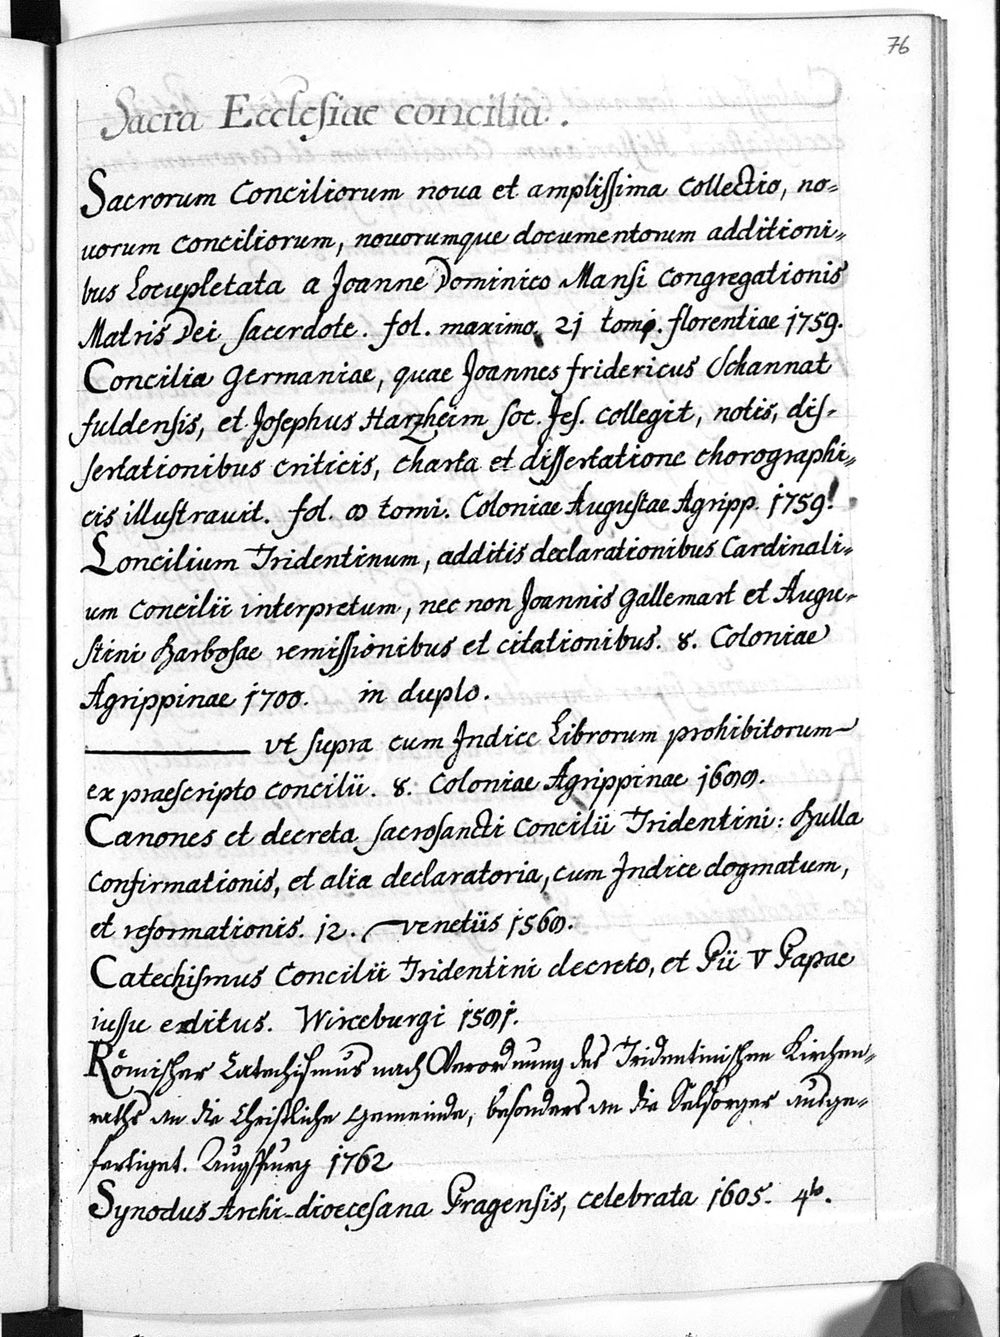 76
Sacra Ecclesiae concilia.
Sacrorum Conciliorum noua et amplissima Collectio, no-
uorum conciliorum, nouorumque documentorum additioni-
bus Locupletata a Joanne Dominico Mansi Congregationis
Matris Dei sacerdote. fol. maximo. 21 tomi. florentiae 1759.
Concilia Germaniae, quae Joannes fridericus Schannat
fuldensis, et Josephus Harzheim Soc. Jes. collegit, notis, dis-
sertationibus criticis, charta et dissertatione chorographi-
cis illustrauit. fol. tomi. Coloniae Augustae Agripp. 1759.
Concilium Tridentinum, additis declarationibus Cardinali-
um Concilii interpretum, nec non Joannis Gallemart et Augu-
stini Barbosae remissionibus et citationibus. 8. Coloniae
Agrippinae 1700. in duplo.
——— vt supra cum Indice Librorum prohibitorum
ex praescripto concilii. 8. Coloniae Agrippinae 1699.
Canones et decreta sacrosancti Concilii Tridentini: Bulla
Confirmationis, et alia declaratoria, cum Indice dogmatum,
et reformationis. 12. venetiis 1569.
Catechismus Concilii Tridentini decreto, et Pii V Papae
iussu editus. Wirceburgi 1591.
Römischer Catechismus nach Verordnung des Tridentinischen Kirchen-
raths an die Christliche Gemeinde, besonders an die Selsorger ausge-
fertiget. Augspurg 1762
Synodus Archi-dioecesana Pragensis, celebrata 1605. 4to.